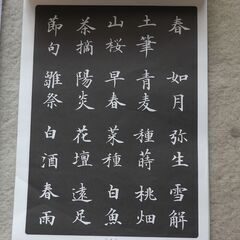 春 如月 弥生 雪解
土筆 青麦 種蒔 桃畑
山桜 早春 菜種 白魚
茶摘 陽炎 花壇 遠足
節句 雛祭 白酒 春雨